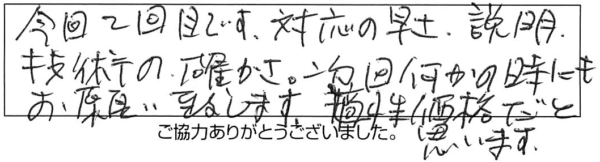 今回2回目です。対応の早さ、説明、
技術の確かさ。次回何かの時にも
お願い致します。適性価格だと
思います。
ご協力ありがとうございました。